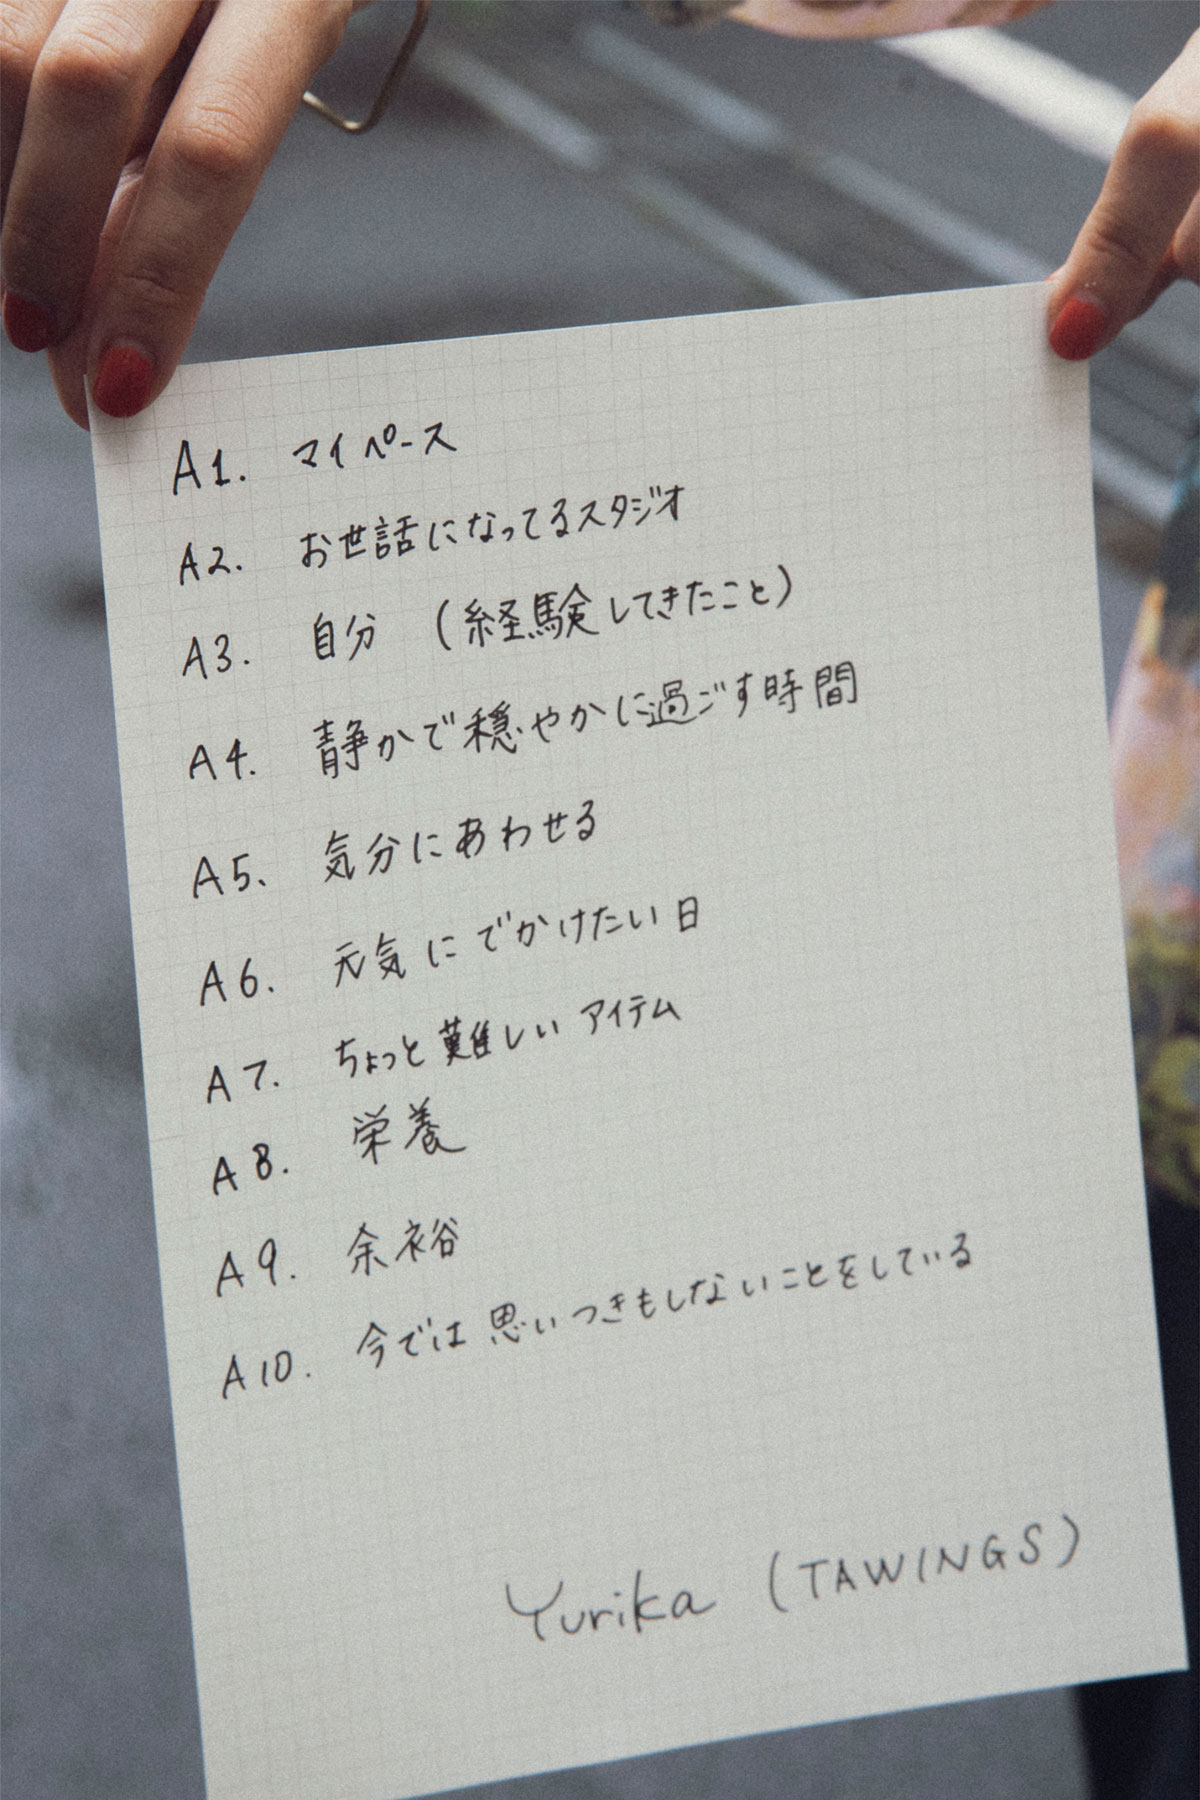 A1. マイペース
A2. お世話になってるスタジオ
A3. 自分 (経験してきたこと)
A4. 静かで穏やかに過ごす時間
A5. 気分にあわせる
A6. 元気にでかけたい日
A7. ちょっと難しいアイテム
A8. 栄養
A9. 余裕
A10. 今では思いつきもしないことをしている
Yurika (TAWINGS)